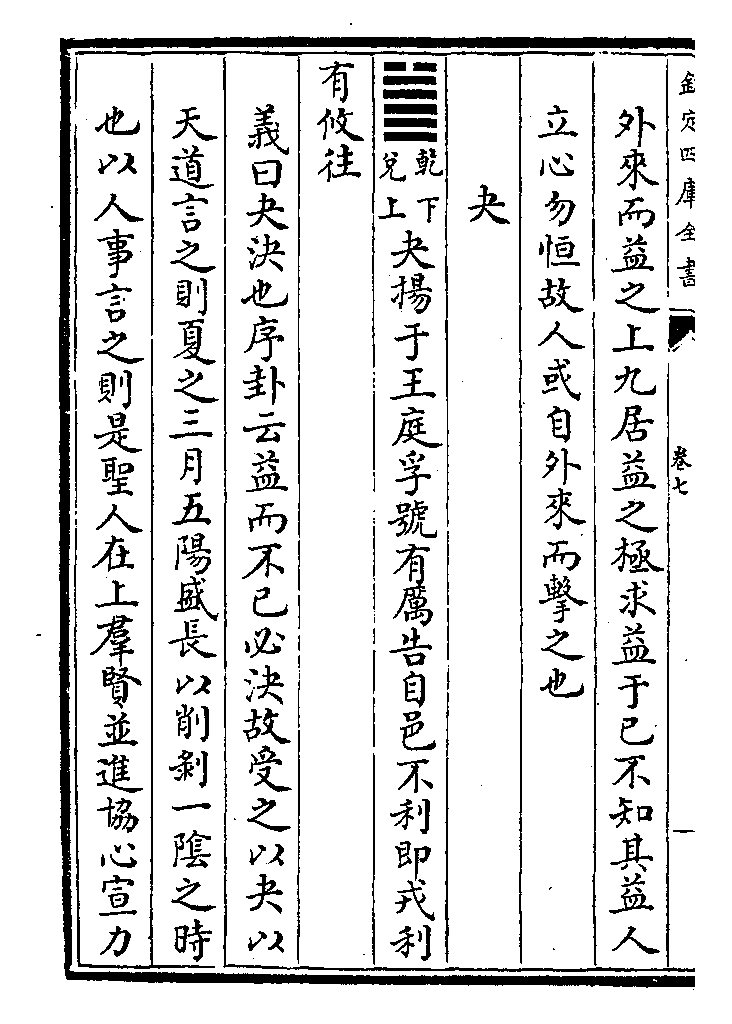 欽定四庫全書
卷七
外來而益之上九居益之極求益于已不知其益人
立心勿恒故人或自外來而擊之也
夬
乾下
兌上
夬揚于王庭孚號有厲告自邑不利即戎利
有攸往
義曰夬決也序卦云益而不已必決故受之以夬以
天道言之則夏之三月五陽盛長以削剝一陰之時
也以人事言之則是聖人在上羣賢並進協心宣力